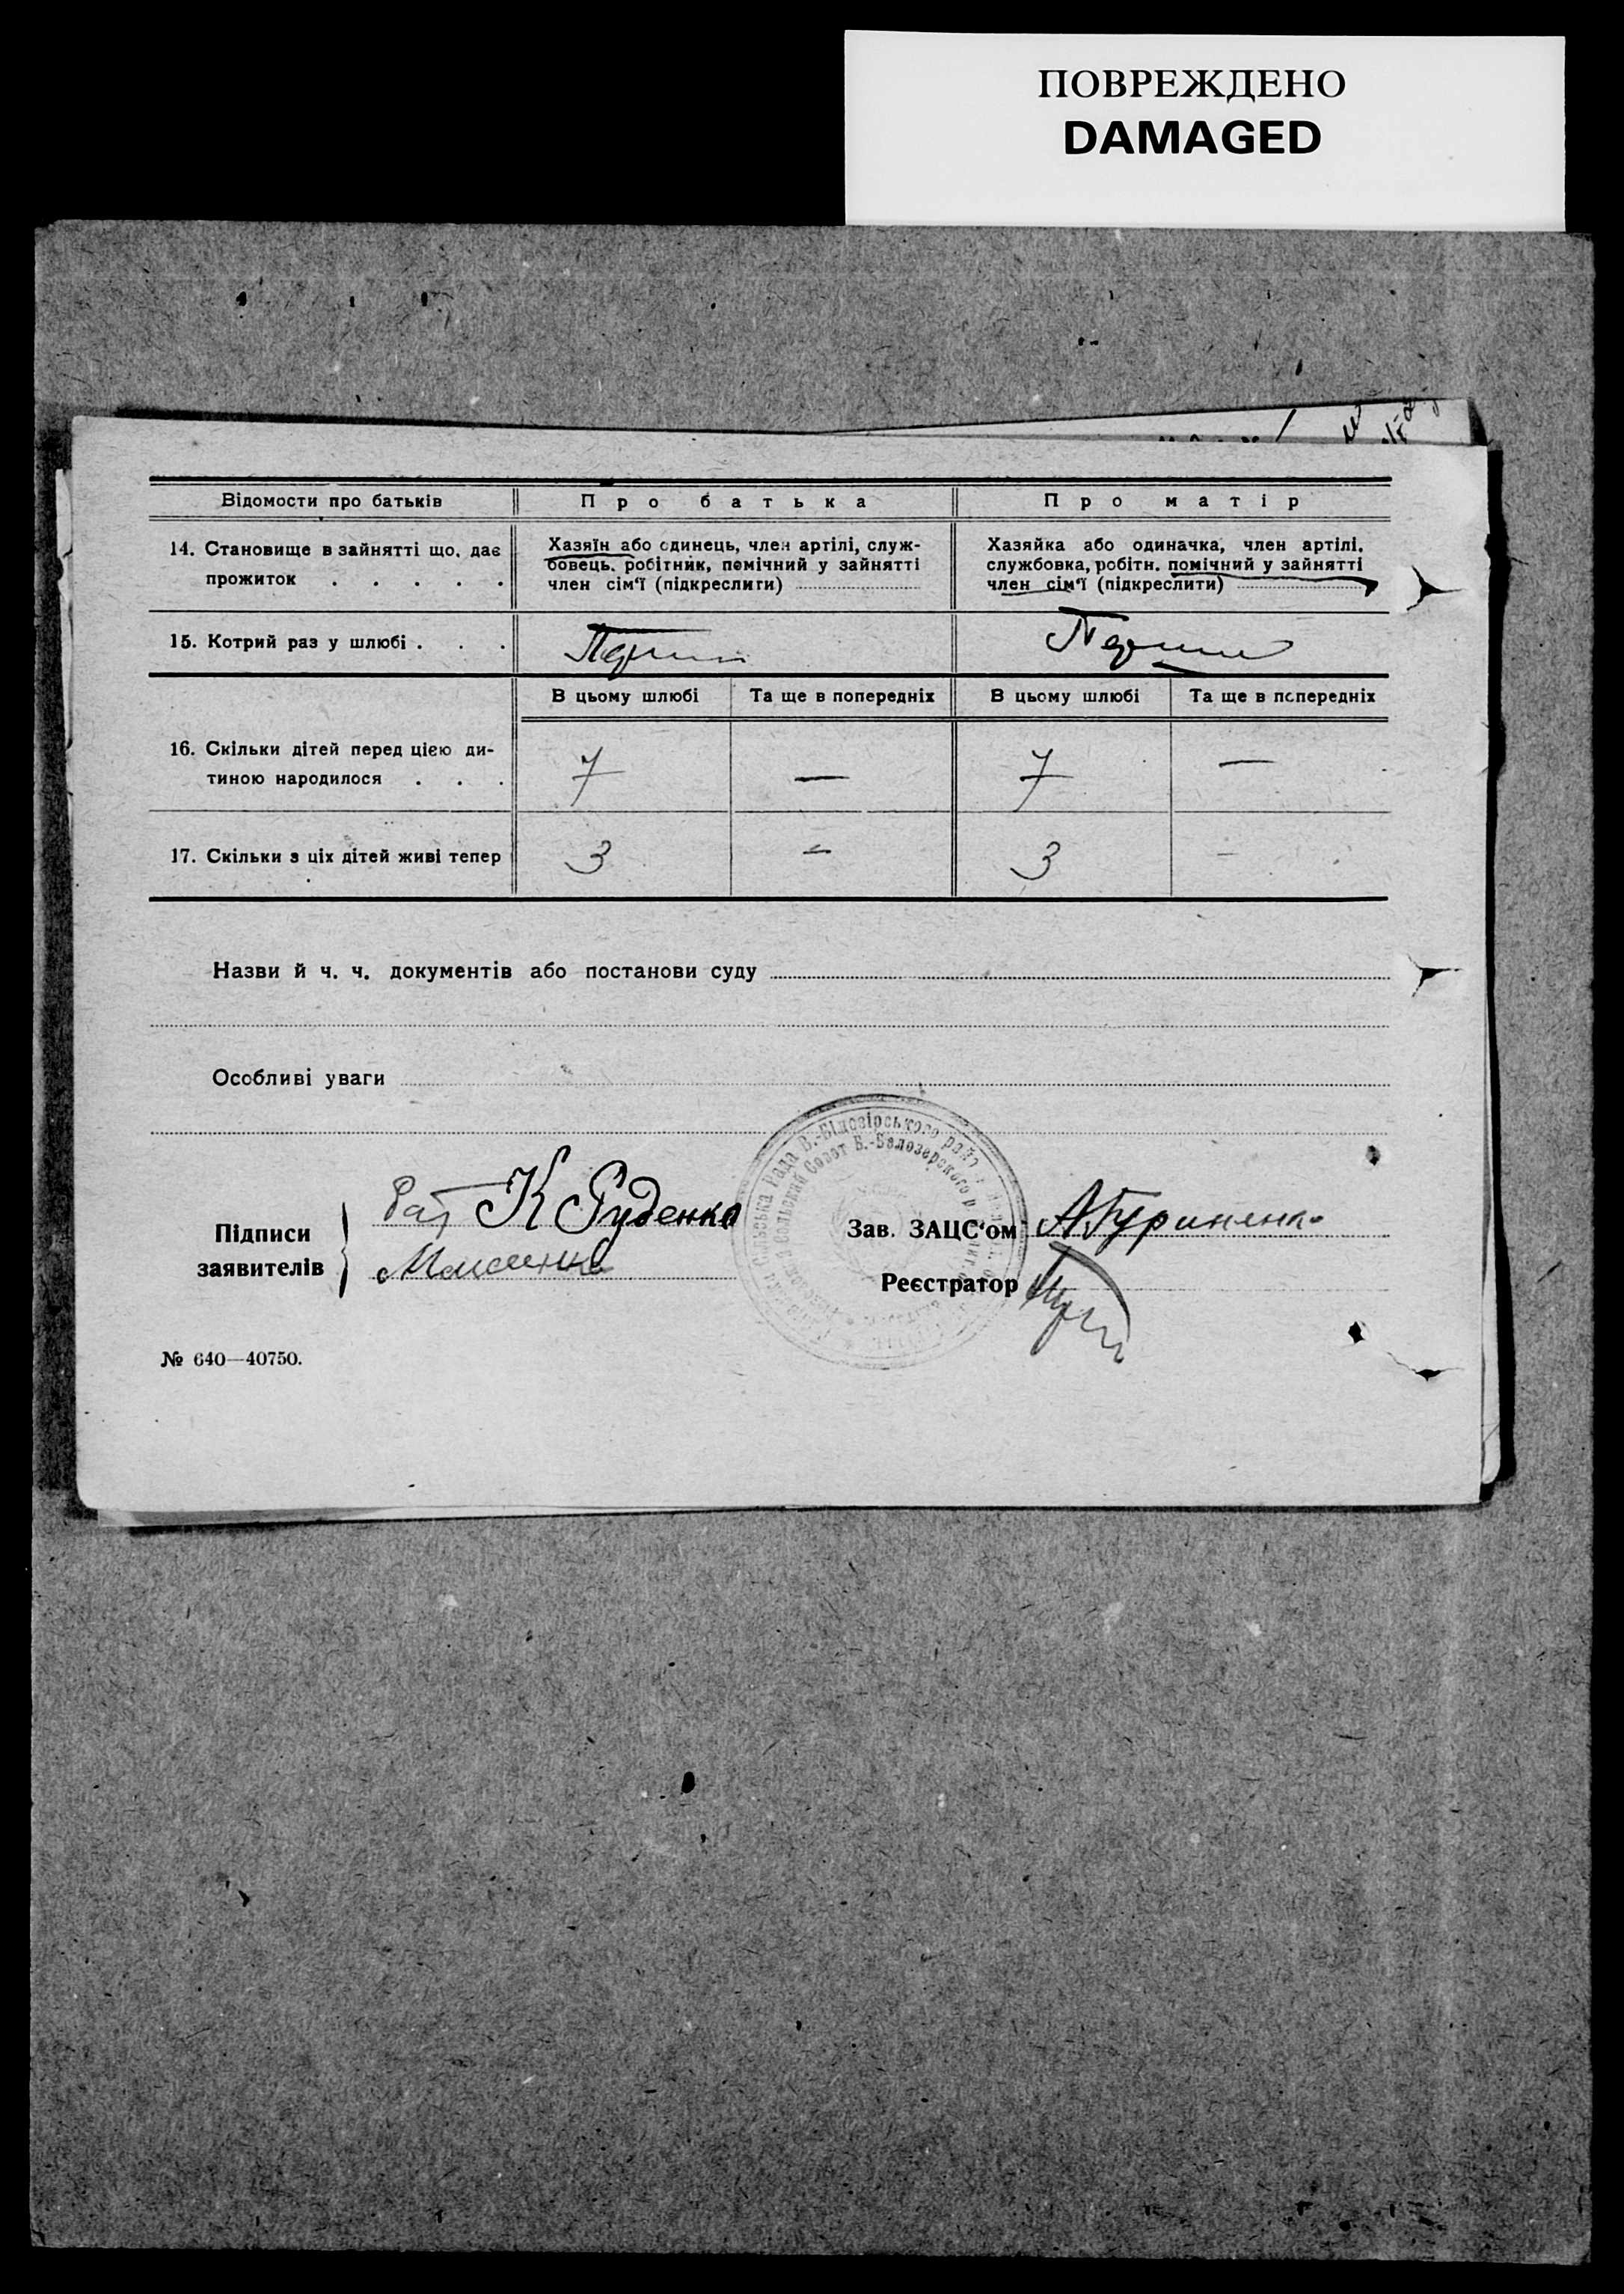 ПОВРЕЖДЕНО
DAMAGED
Відомости про батьків
Про батька
Про матір
14. Становище в зайнятті що, дає
прожиток . . . . .
Хазяїн або одинець, член артілі, служ-
бовець, робітник, помічний у зайнятті
член сім'ї (підкреслити)
Хазяйка або одиначка, член артілі,
службовка, робітн. помічний у зайнятті
член сім'ї (підкреслити)
15. Котрий раз у шлюбі . . .
В цьому шлюбі
Та ще в попередніх
В цьому шлюбі
Та ще в попередніх
16. Скільки дітей перед цією ди-
тиною народилося . . .
7
—
7
—
17. Скільки з ціх дітей живі тепер
3
—
3
—
Назви й ч. ч. документів або постанови суду
Особливі уваги
Сільська Рада В.-Білозірського
Совет Б.-Белозерского
Підписи
заявителів
К Руденко
Зав. ЗАЦС'ом
Реєстратор
№ 640—40750.